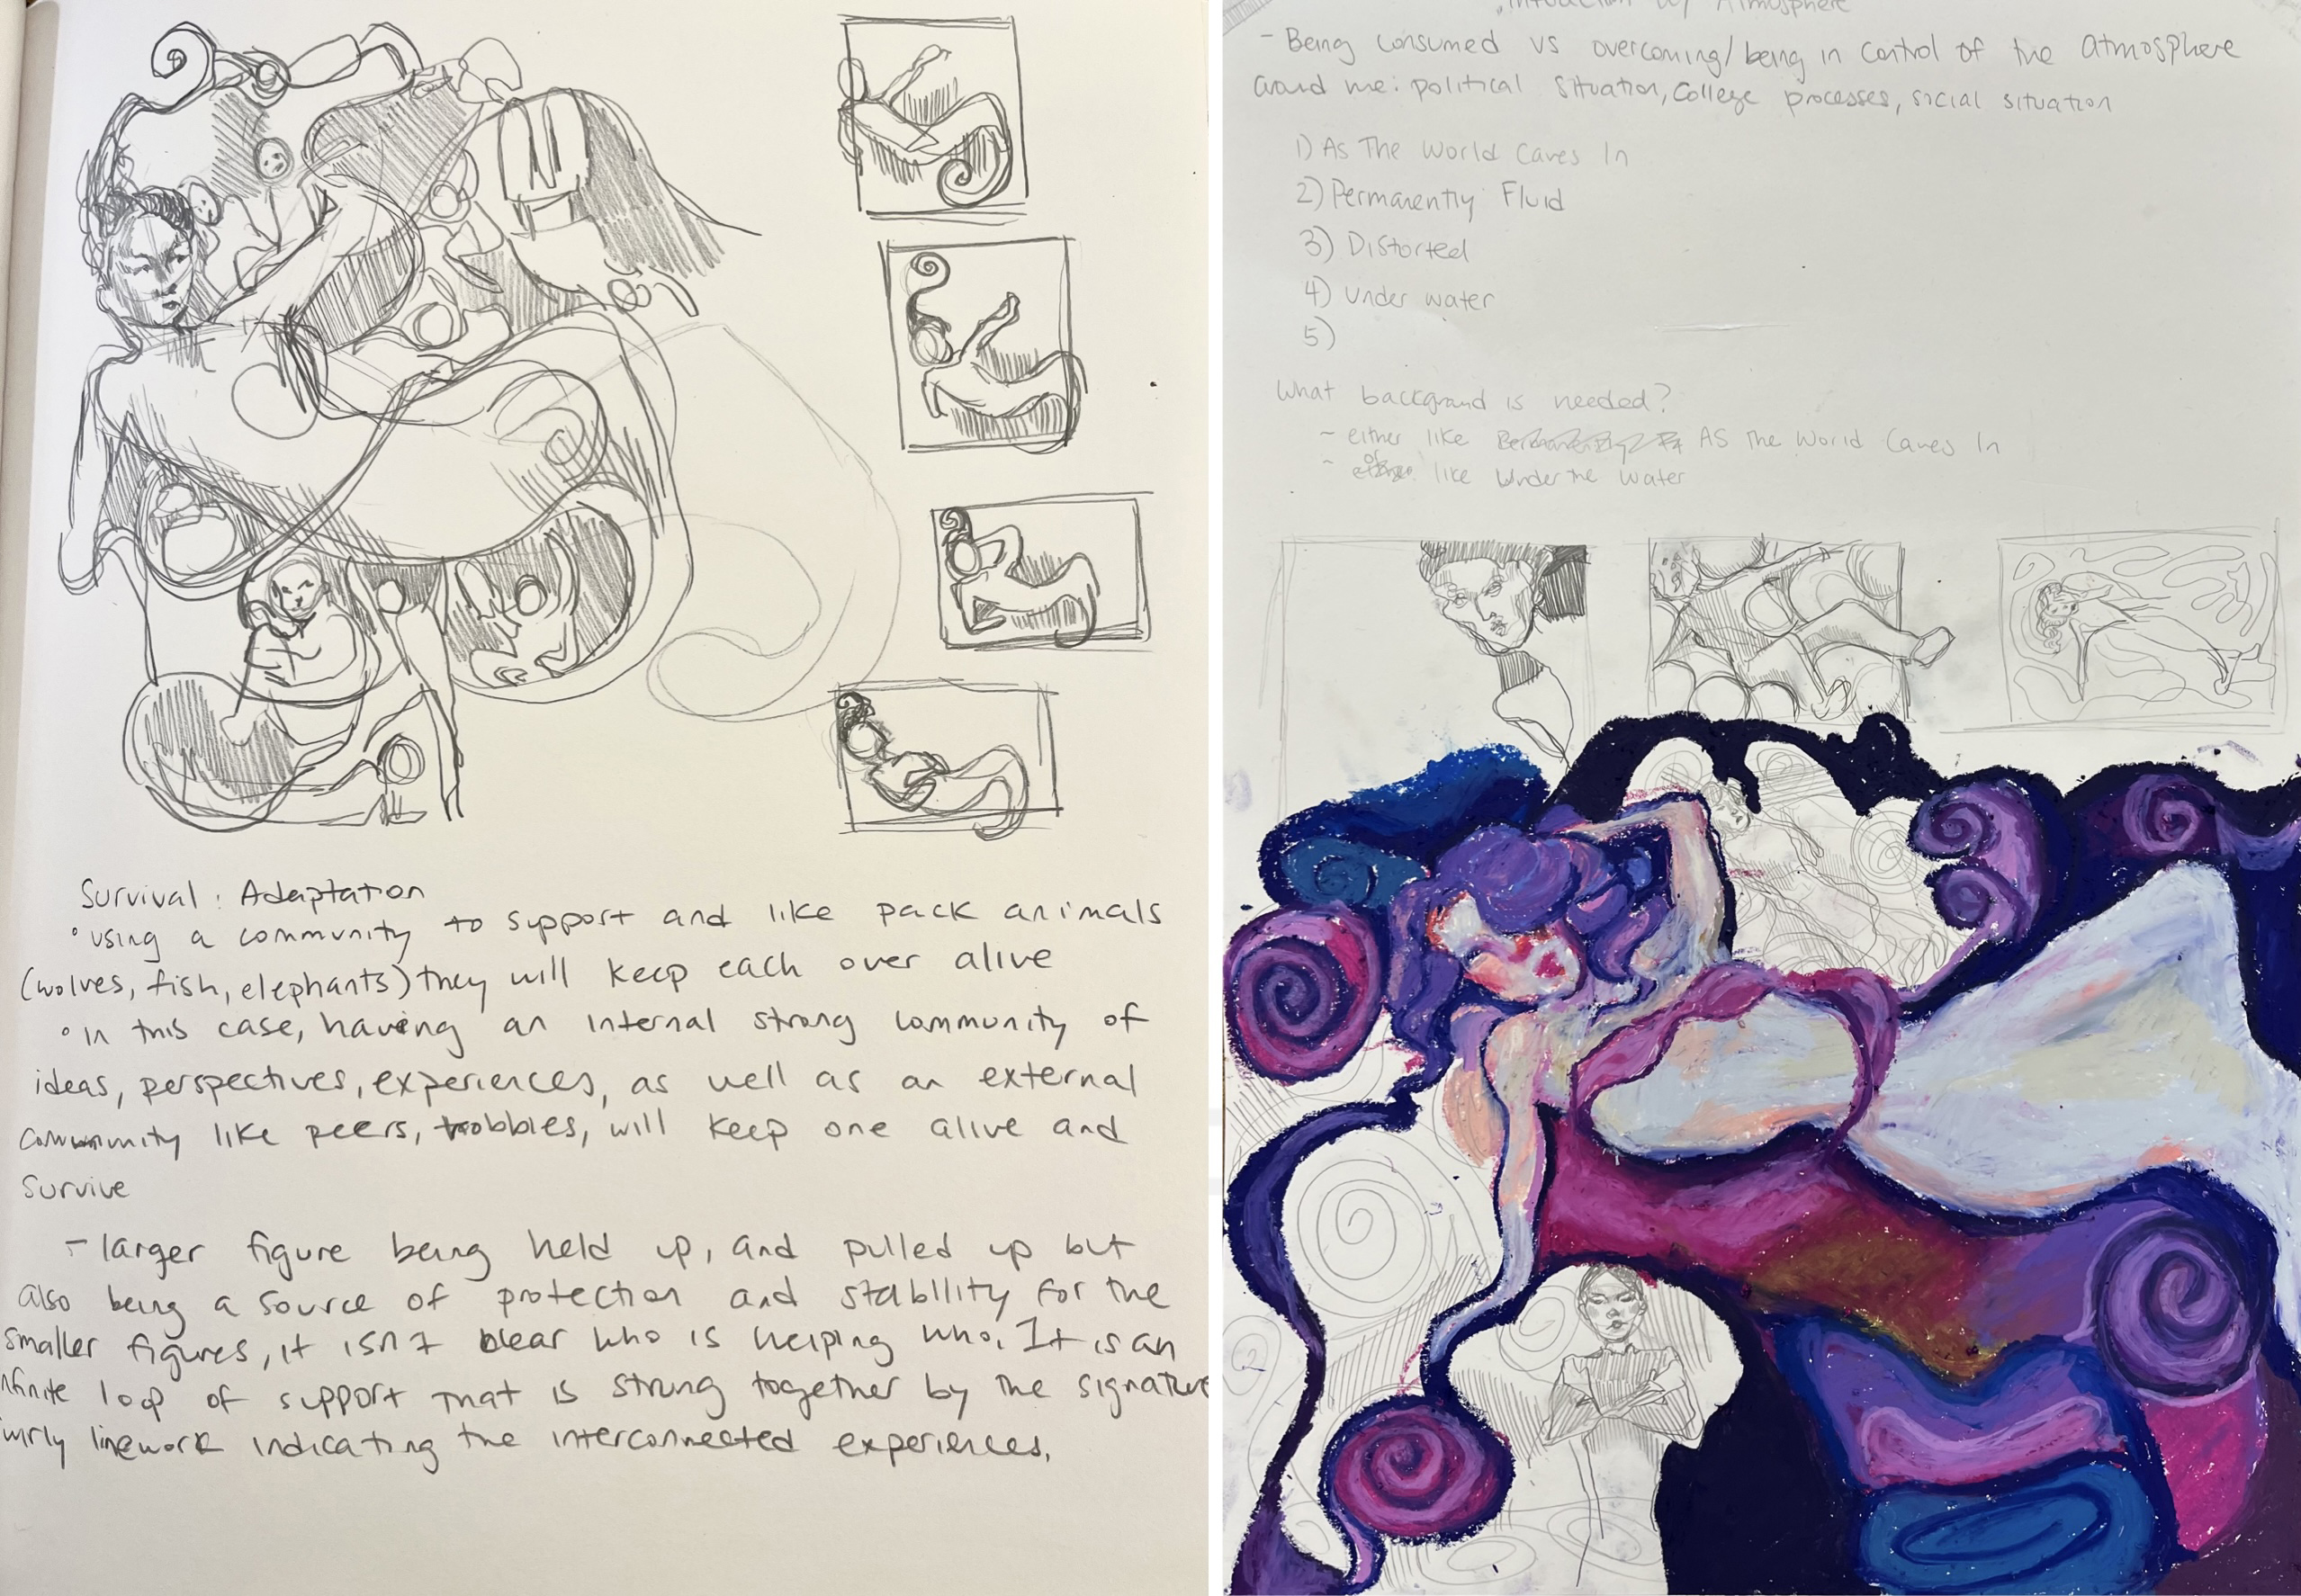 Survival: Adaptation
• using a community to support and like pack animals
(wolves, fish, elephants) they will keep each over alive
• in this case, having an internal strong community of
ideas, perspectives, experiences, as well as an external
community like peers, hobbies, will keep one alive and
survive
- larger figure being held up, and pulled up but
also being a source of protection and stability for the
smaller figures, it isn't clear who is helping who. It is an
nfinite loop of support that is strung together by the signature
wirly linework indicating the interconnected experiences.
w/ Atmosphere
- Being consumed vs overcoming/being in control of the atmosphere
around me: political situation, college processes, social situation
1) As The World Caves In
2) Permanently Fluid
3) Distorted
4) Under water
5)
What background is needed?
- either like As The World Caves In
- or like Under the Water